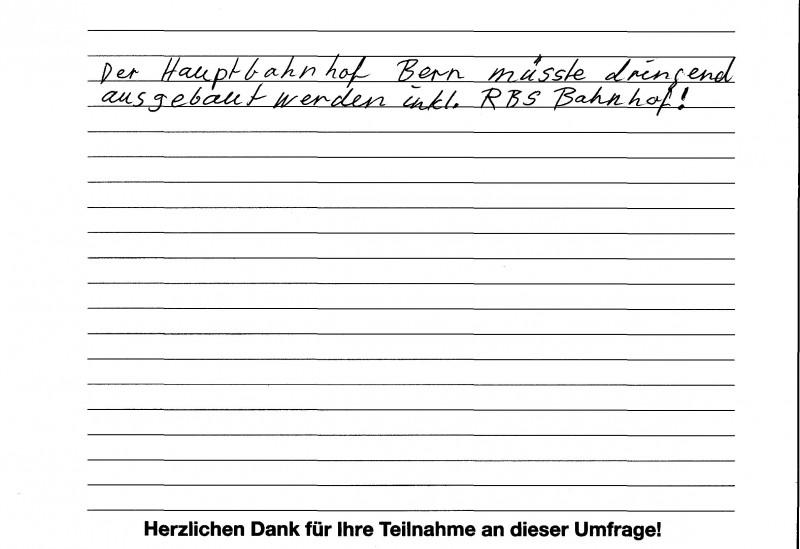 Der Hauptbahnhof Bern müsste dringend
ausgebaut werden inkl. RBS Bahnhof!
Herzlichen Dank für Ihre Teilnahme an dieser Umfrage!